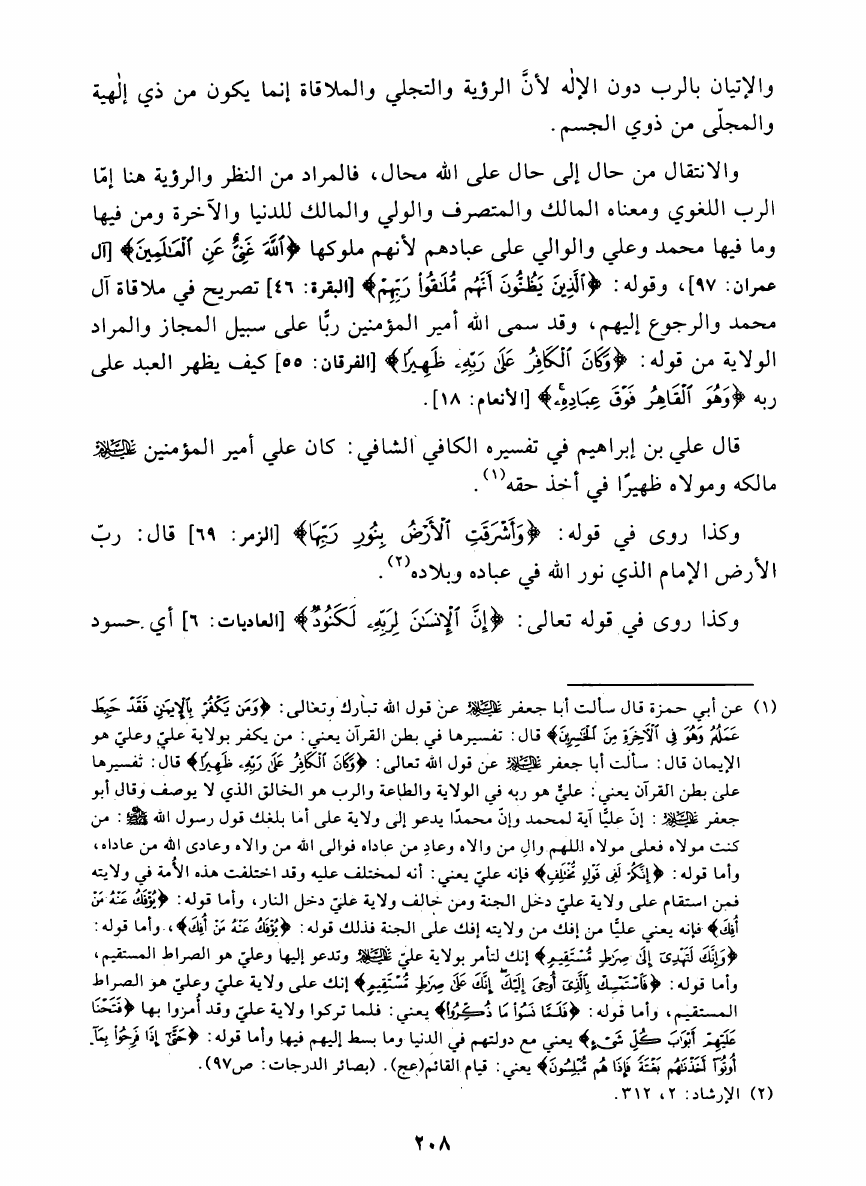 والإتيان بالرب دون الإلٰه لأنَّ الرؤية والتجلي والملاقاة إنما يكون من ذي إلٰهية
والمجلّى من ذوي الجسم.
والانتقال من حال إلى حال على الله محال، فالمراد من النظر والرؤية هنا إمّا
الرب اللغوي ومعناه المالك والمتصرف والولي والمالك للدنيا والآخرة ومن فيها
وما فيها محمد وعلي والوالي على عبادهم لأنهم ملوكها ﴿ٱللَّهَ غَنِىٌّ عَنِ ٱلْعَٰلَمِينَ﴾ [آل
عمران: ٩٧]، وقوله: ﴿ٱلَّذِينَ يَظُنُّونَ أَنَّهُم مُّلَٰقُوا۟ رَبِّهِمْ﴾ [البقرة: ٤٦] تصريح في ملاقاة آل
محمد والرجوع إليهم، وقد سمى الله أمير المؤمنين ربًّا على سبيل المجاز والمراد
الولاية من قوله: ﴿وَكَانَ ٱلْكَافِرُ عَلَىٰ رَبِّهِۦ ظَهِيرًا﴾ [الفرقان: ٥٥] كيف يظهر العبد على
ربه ﴿وَهُوَ ٱلْقَاهِرُ فَوْقَ عِبَادِهِۦۚ﴾ [الأنعام: ١٨].
قال علي بن إبراهيم في تفسيره الكافي الشافي: كان علي أمير المؤمنين عليه السلام
مالكه ومولاه ظهيرًا في أخذ حقه(١).
وكذا روى في قوله: ﴿وَأَشْرَقَتِ ٱلْأَرْضُ بِنُورِ رَبِّهَا﴾ [الزمر: ٦٩] قال: ربّ
الأرض الإمام الذي نور الله في عباده وبلاده(٢).
وكذا روى في قوله تعالى: ﴿إِنَّ ٱلْإِنسَٰنَ لِرَبِّهِۦ لَكَنُودٌ﴾ [العاديات: ٦] أي حسود
(١) عن أبي حمزة قال سألت أبا جعفر عليه السلام عن قول الله تبارك وتعالى: ﴿وَمَن يَكْفُرْ بِٱلْإِيمَٰنِ فَقَدْ حَبِطَ
عَمَلُهُۥ وَهُوَ فِى ٱلْءَاخِرَةِ مِنَ ٱلْخَٰسِرِينَ﴾ قال: تفسيرها في بطن القرآن يعني: من يكفر بولاية عليّ وعليّ هو
الإيمان قال: سألت أبا جعفر عليه السلام عن قول الله تعالى: ﴿وَكَانَ ٱلْكَافِرُ عَلَىٰ رَبِّهِۦ ظَهِيرًا﴾ قال: تفسيرها
على بطن القرآن يعني: عليٌّ هو ربه في الولاية والطاعة والرب هو الخالق الذي لا يوصف وقال أبو
جعفر عليه السلام: إنّ عليًّا آية لمحمد وإنّ محمدًا يدعو إلى ولاية على أما بلغك قول رسول الله ﷺ: من
كنت مولاه فعلى مولاه اللهم والِ من والاه وعادِ من عاداه فوالى الله من والاه وعادى الله من عاداه،
وأما قوله: ﴿إِنَّكُمْ لَفِى قَوْلٍ مُّخْتَلِفٍ﴾ فإنه عليّ يعني: أنه لمختلف عليه وقد اختلفت هذه الأُمة في ولايته
فمن استقام على ولاية عليّ دخل الجنة ومن خالف ولاية عليّ دخل النار، وأما قوله: ﴿يُؤْفَكُ عَنْهُ مَنْ
أُفِكَ﴾ فإنه يعني عليًّا من إفك من ولايته إفك على الجنة فذلك قوله: ﴿يُؤْفَكُ عَنْهُ مَنْ أُفِكَ﴾، وأما قوله:
﴿وَإِنَّكَ لَتَهْدِىٓ إِلَىٰ صِرَٰطٍ مُّسْتَقِيمٍ﴾ إنك لتأمر بولاية عليّ عليه السلام وتدعو إليها وعليّ هو الصراط المستقيم،
وأما قوله: ﴿فَٱسْتَمْسِكْ بِٱلَّذِىٓ أُوحِىَ إِلَيْكَ إِنَّكَ عَلَىٰ صِرَٰطٍ مُّسْتَقِيمٍ﴾ إنك على ولاية عليّ وعليّ هو الصراط
المستقيم، وأما قوله: ﴿فَلَمَّا نَسُوا۟ مَا ذُكِّرُوا۟﴾ يعني: فلما تركوا ولاية عليّ وقد أُمزوا بها ﴿فَتَحْنَا
عَلَيْهِمْ أَبْوَٰبَ كُلِّ شَىْءٍ﴾ يعني مع دولتهم في الدنيا وما بسط إليهم فيها وأما قوله: ﴿حَتَّىٰٓ إِذَا فَرِحُوا۟ بِمَآ
أُوتُوٓا۟ أَخَذْنَٰهُم بَغْتَةً فَإِذَا هُم مُّبْلِسُونَ﴾ يعني: قيام القائم(عج). (بصائر الدرجات: ص٩٧).
(٢) الإرشاد: ٢، ٣١٢.
٢٠٨